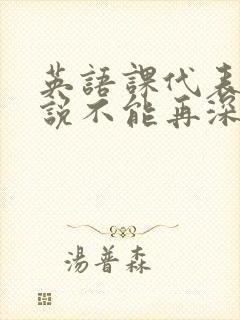 英語課代表
說不能再深
湯普森